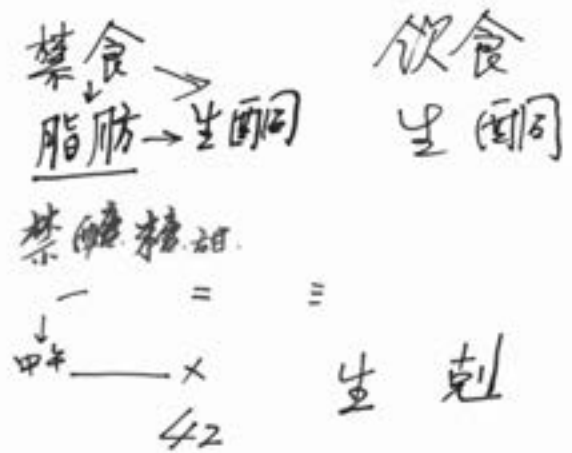 禁食 饮食
脂肪→生酮 生酮
禁糖 甜
一 二 三
甲午 ×
42 生 剋